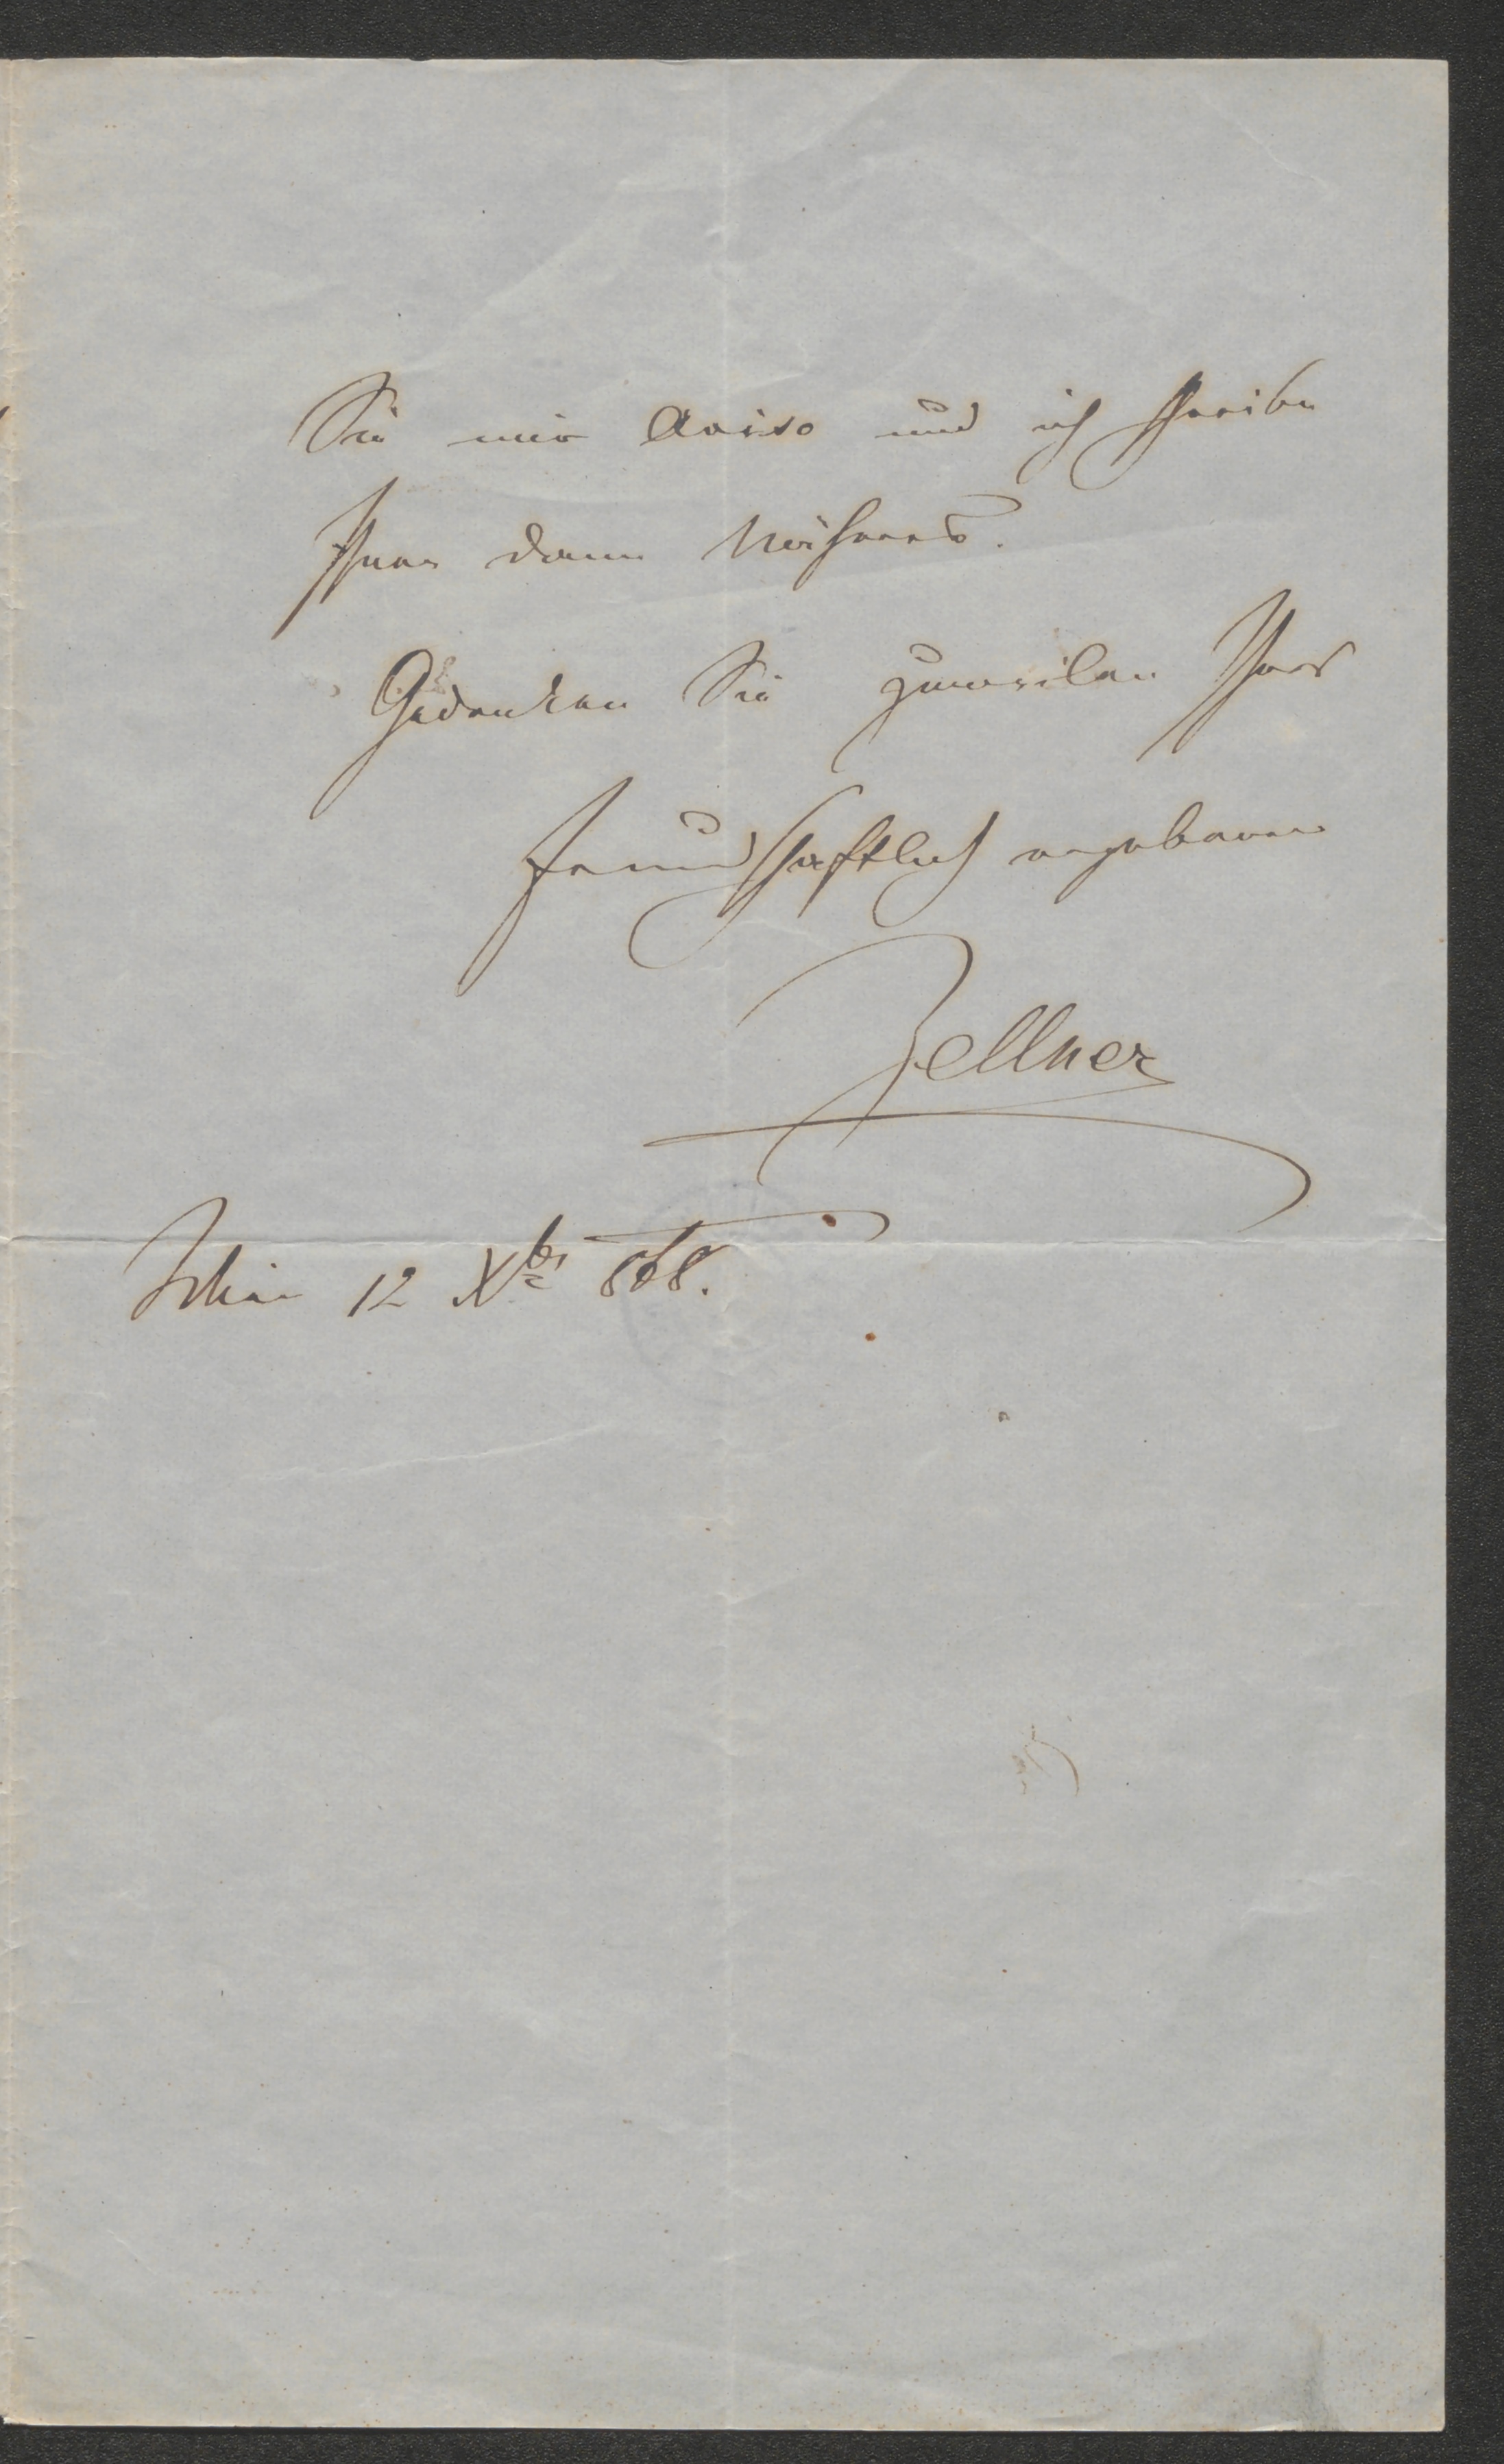 Sie mir Aviso und ich schreibe
Ihnen dann Näheres.
Gedenken Sie zuweilen Ihres
freundschaftlich ergebenen
Zellner
Wien 12 Xbr 868.